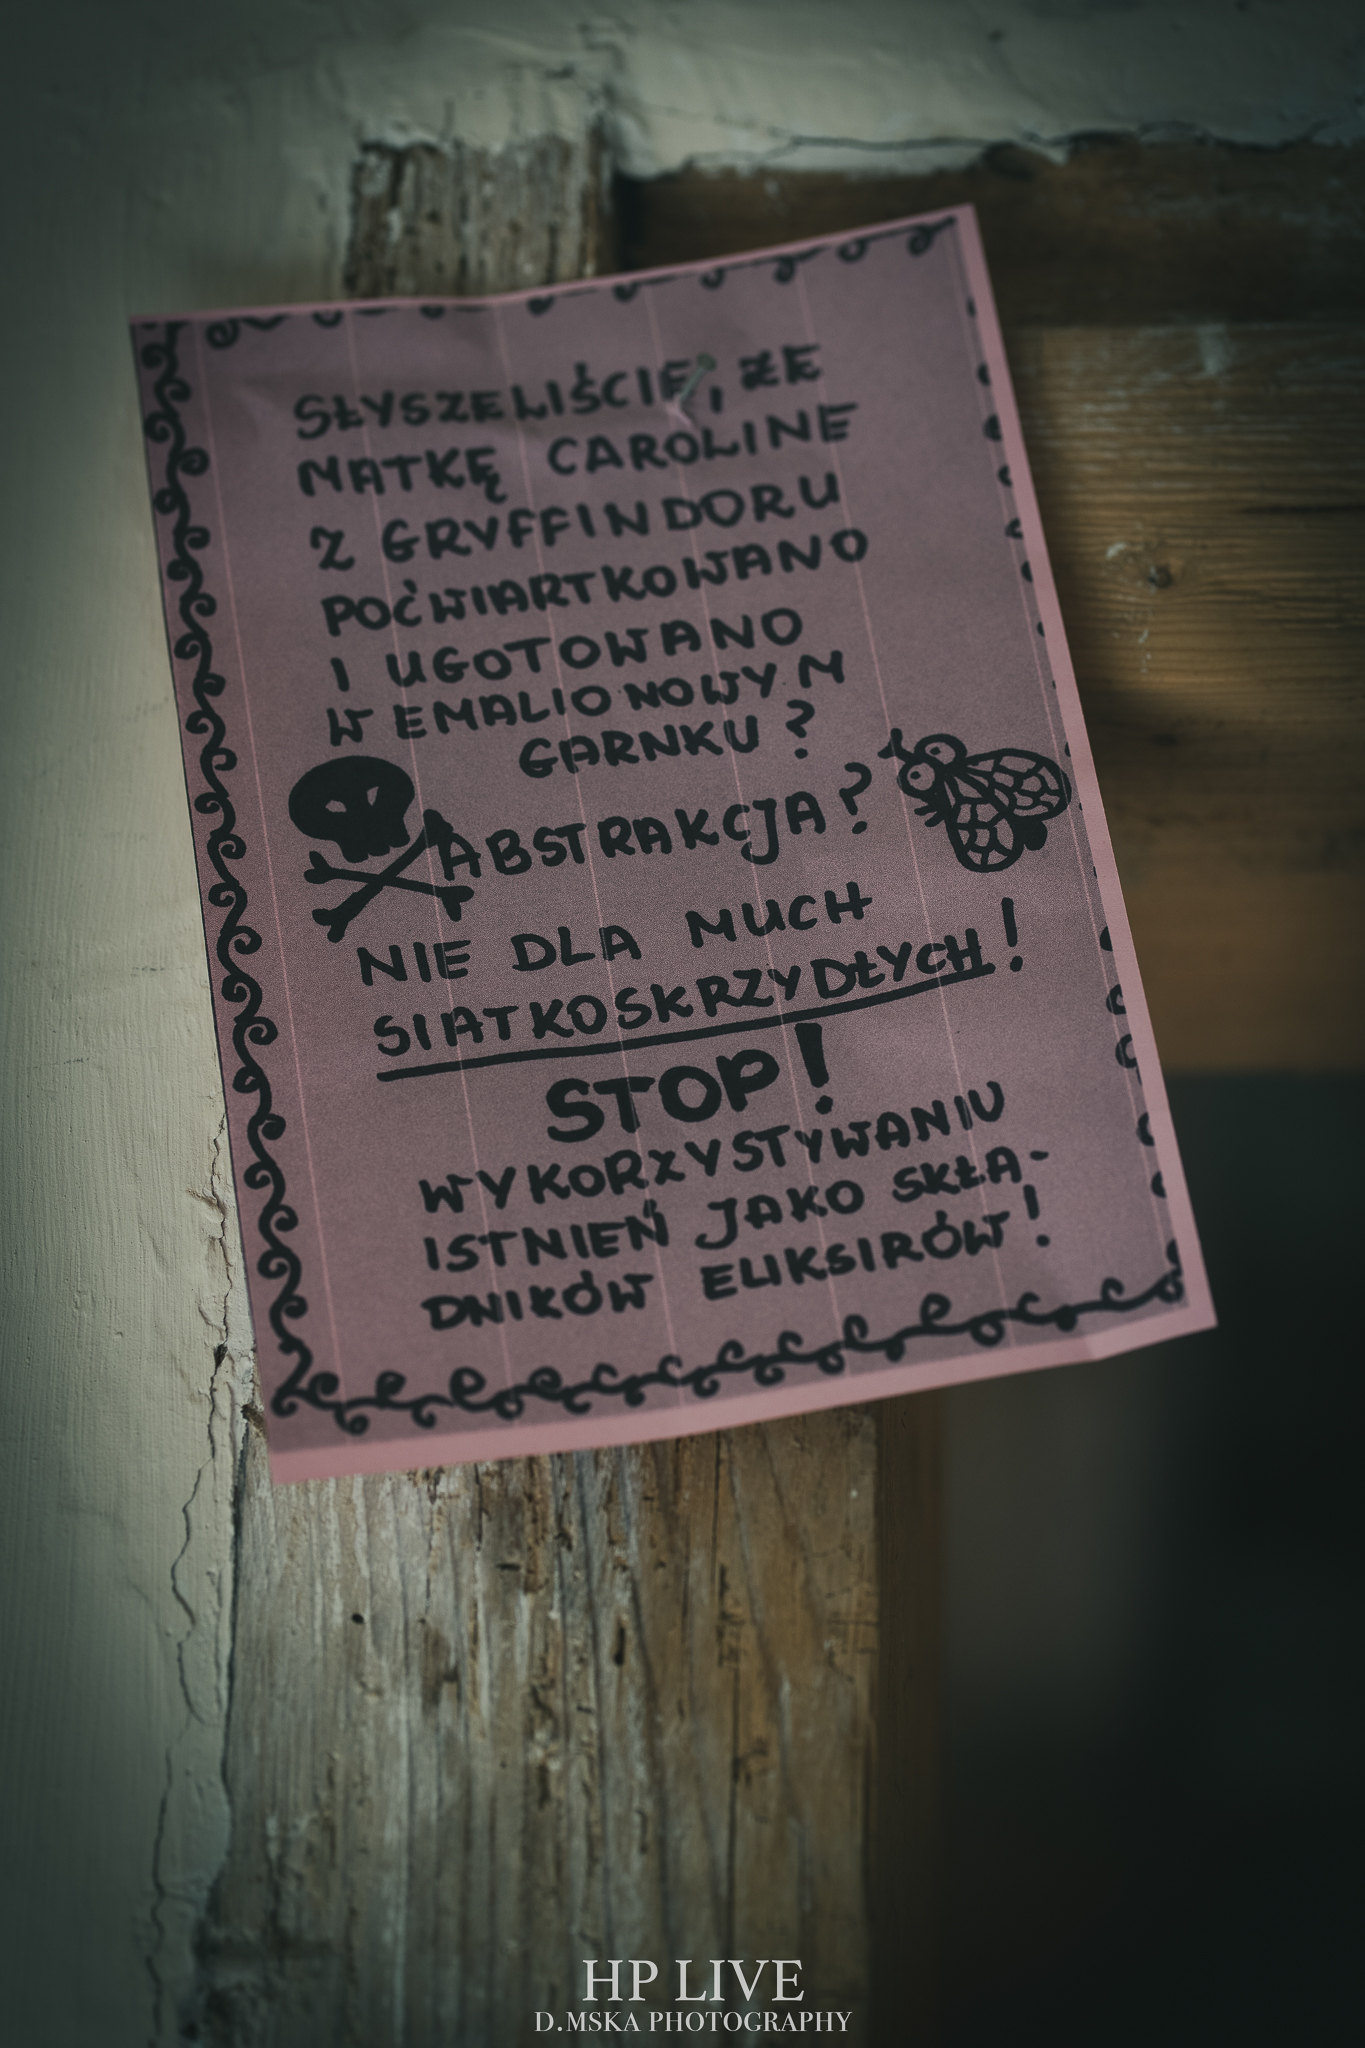 SŁYSZELIŚCIE, ŻE
MATKĘ CAROLINE
Z GRYFFINDORU
POĆWIARTKOWANO
I UGOTOWANO
W EMALIONOWYM
GARNKU?
ABSTRAKCJA?
NIE DLA MUCH
SIATKOSKRZYDŁYCH!
STOP!
WYKORZYSTYWANIU
ISTNIEŃ JAKO SKŁA-
DNIKÓW ELIKSIRÓW!
HP LIVE
D.MSKA PHOTOGRAPHY